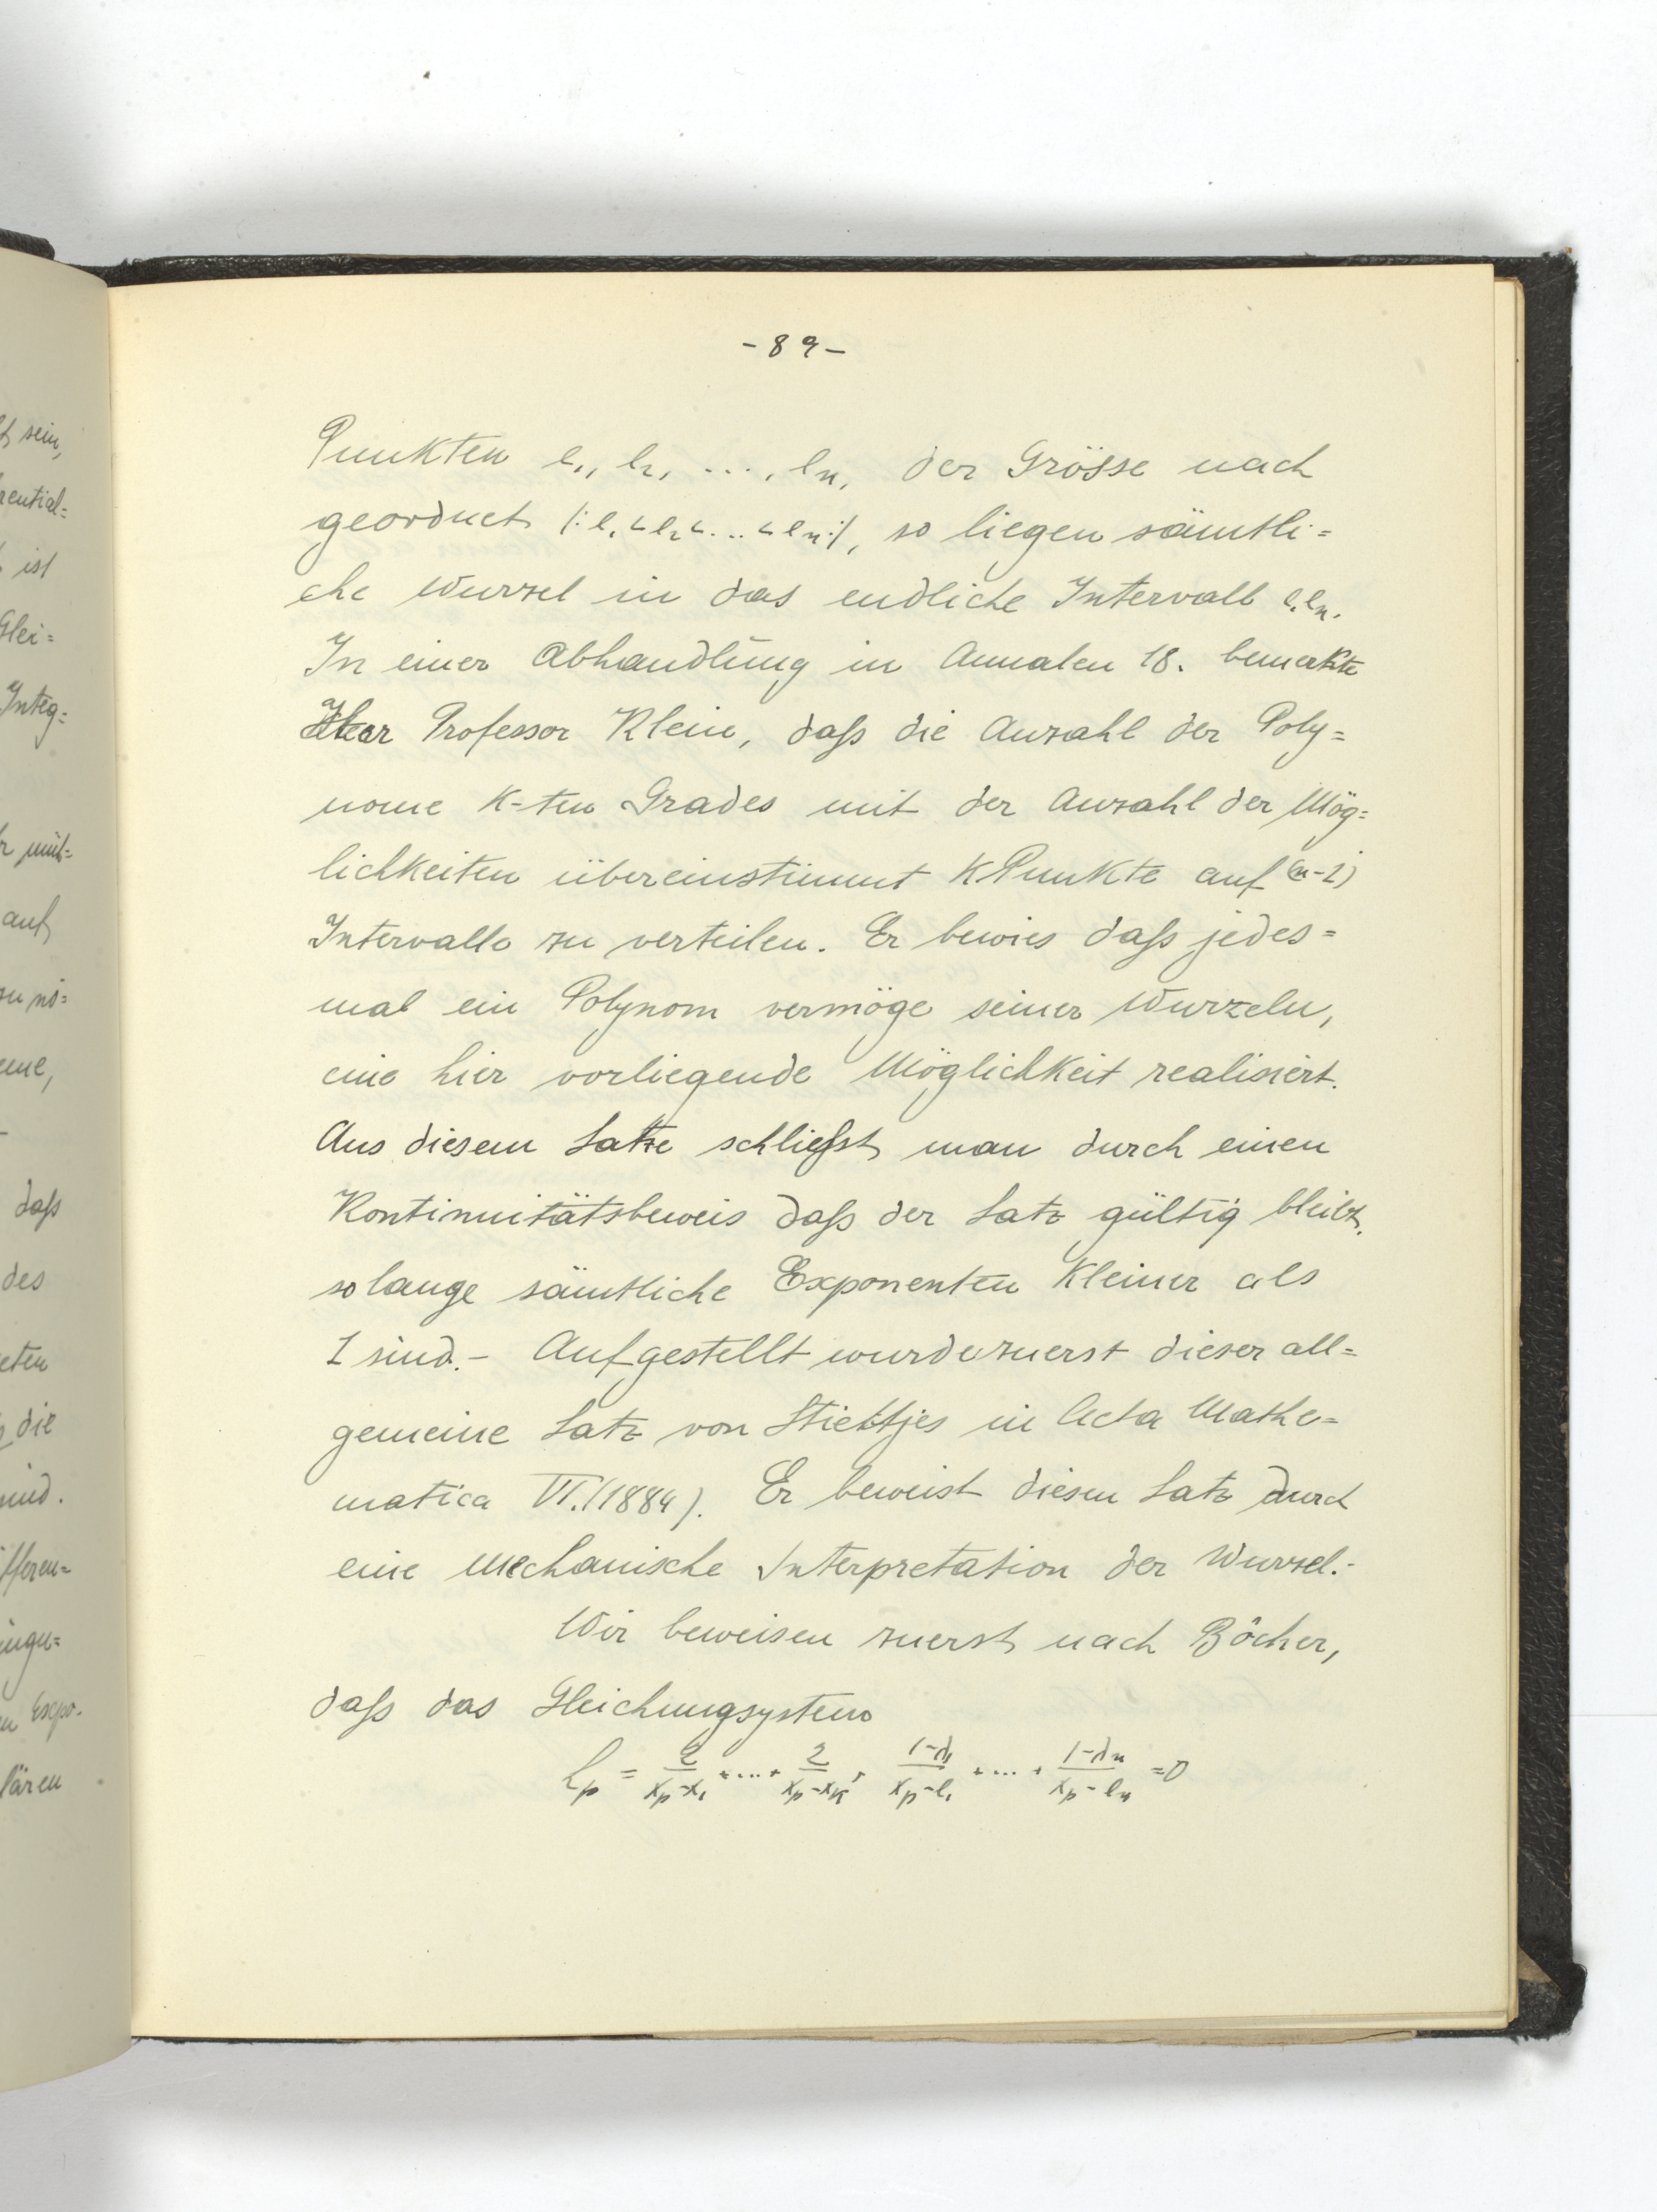 - 89 -
Punkten e₁, e₂, ..., eₙ, der Grösse nach
geordnet /: e₁ < e₂ < ... < eₙ :/, so liegen sämtli=
che Wurzel in das endliche Intervall e₁eₙ.
In einer Abhandlung in Annalen 18. bemerkte
Herr Professor Klein, daſs die Anzahl der Poly=
nome K-ten Grades mit der Anzahl der Mög=
lichkeiten übereinstimmt K Punkte auf (n-1)
Intervalle zu verteilen. Er bewies daſs jedes=
mal ein Polynom vermöge seiner Wurzeln,
eine hier vorliegende Möglichkeit realisiert.
Aus diesem Satze schlieſst man durch einen
Kontinuitätsbeweis daſs der Satz gültig bleibt,
solange sämtliche Exponenten Kleiner als
1 sind. - Aufgestellt wurde zuerst dieser all=
gemeine Satz von Stieltjes in Acta Mathe=
matica VI. (1884). Er beweist diesen Satz durch
eine mechanische Interpretation der Wurzel. -
Wir beweisen zuerst nach Bôcher,
daſs das Gleichungsystem
Lₚ = 2/(xₚ-x₁) + .... + 2/(xₚ-xₖ) + (1-λ₁)/(xₚ-e₁) + .... + (1-λₙ)/(xₚ-eₙ) = 0
sein,
rential=
ist
Glei=
Integ=
auf
daſs
des
eten
die
sind.
fferen=
ingu=
Expo-
lären